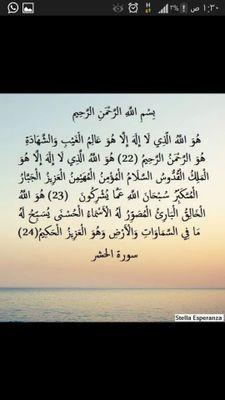 ١:٣٠ ص
٣%
بِسْمِ اللَّهِ الرَّحْمَنِ الرَّحِيمِ
هُوَ اللَّهُ الَّذِي لَا إِلَهَ إِلَّا هُوَ عَالِمُ الْغَيْبِ وَالشَّهَادَةِ
هُوَ الرَّحْمَنُ الرَّحِيمُ (22) هُوَ اللَّهُ الَّذِي لَا إِلَهَ إِلَّا هُوَ
الْمَلِكُ الْقُدُّوسُ السَّلَامُ الْمُؤْمِنُ الْمُهَيْمِنُ الْعَزِيزُ الْجَبَّارُ
الْمُتَكَبِّرُ سُبْحَانَ اللَّهِ عَمَّا يُشْرِكُونَ (23) هُوَ اللَّهُ
الْخَالِقُ الْبَارِئُ الْمُصَوِّرُ لَهُ الْأَسْمَاءُ الْحُسْنَى يُسَبِّحُ لَهُ
مَا فِي السَّمَاوَاتِ وَالْأَرْضِ وَهُوَ الْعَزِيزُ الْحَكِيمُ(24)
سورة الحشر
Stella Esperanza